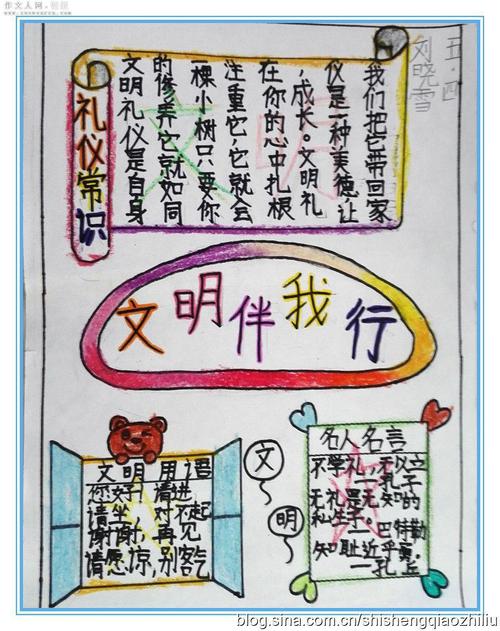 作文人网
五.四
刘晓雪
礼仪常识
文明礼仪是自身
的修养它就如同
一棵小树只要你
注重它,它就会
在你的心中扎根
,成长。文明礼
仪是一种美德,让
我们把它带回家
文明伴我行
文明用语
您好,请进
请坐,对不起
谢谢,再见
请愿凉,别客乞
文
明
名人名言
不学礼,无以立
——孔子
无礼是无知的
私生子。——巴特勒
知耻近乎勇。
blog.sina.com.cn/shishengqiaozhiliu